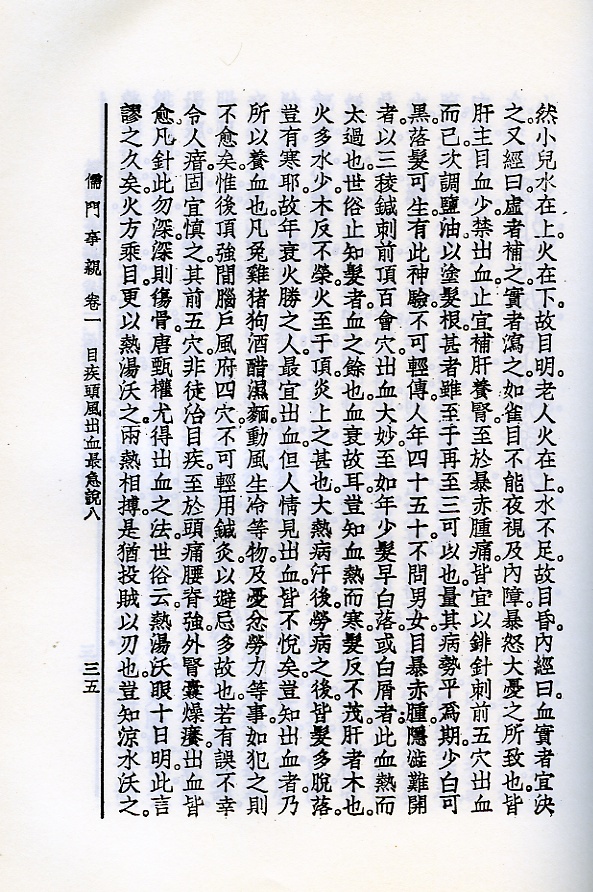 然小兒水在上。火在下。故目明。老人火在上。水不足。故目昏。內經曰。血實者宜決
之。又經曰。虛者補之。實者瀉之。如雀目不能夜視。及內障。暴怒大憂之所致也。皆
肝主目血少。禁出血。止宜補肝養腎。至於暴赤腫痛。皆宜以錍針刺前五穴出血
而已。次調鹽油以塗髮根。甚者雖至于再至三可以也。量其病勢。平爲期。少白可
黑。落髮可生。有此神驗。不可輕傳。人年四十五十。不問男女。目暴赤腫。隱澁難開
者。以三稜鍼刺前頂百會穴。出血大妙。至如年少髮早白落。或白屑者。此血熱而
太過也。世俗止知髮者血之餘也。血衰故耳。豈知血熱而寒。髮反不茂。肝者木也。
火多水少。木反不榮。火至于頂。炎上之甚也。大熱病汗後。勞病之後。皆髮多脫落。
豈有寒耶。故年衰火勝之人。最宜出血。但人情見出血皆不悅矣。豈知出血者乃
所以養血也。凡兔雞猪狗酒醋濕麵。動風生冷等物。及憂忿勞力等事。如犯之則
不愈矣。惟後頂強間腦戶風府四穴。不可輕用鍼灸。以避忌多故也。若有誤。不幸
令人瘖。固宜慎之。其前五穴。非徒治目疾。至於頭痛腰脊強。外腎囊燥癢。出血皆
愈。凡針此勿深。深則傷骨。唐甄權尤得出血之法。世俗云。熱湯沃眼十日明。此言
謬之久矣。火方乘目。更以熱湯沃之。兩熱相搏。是猶投賊以刃也。豈知涼水沃之。
儒門事親 卷一 目疾頭風出血最急說八 三五